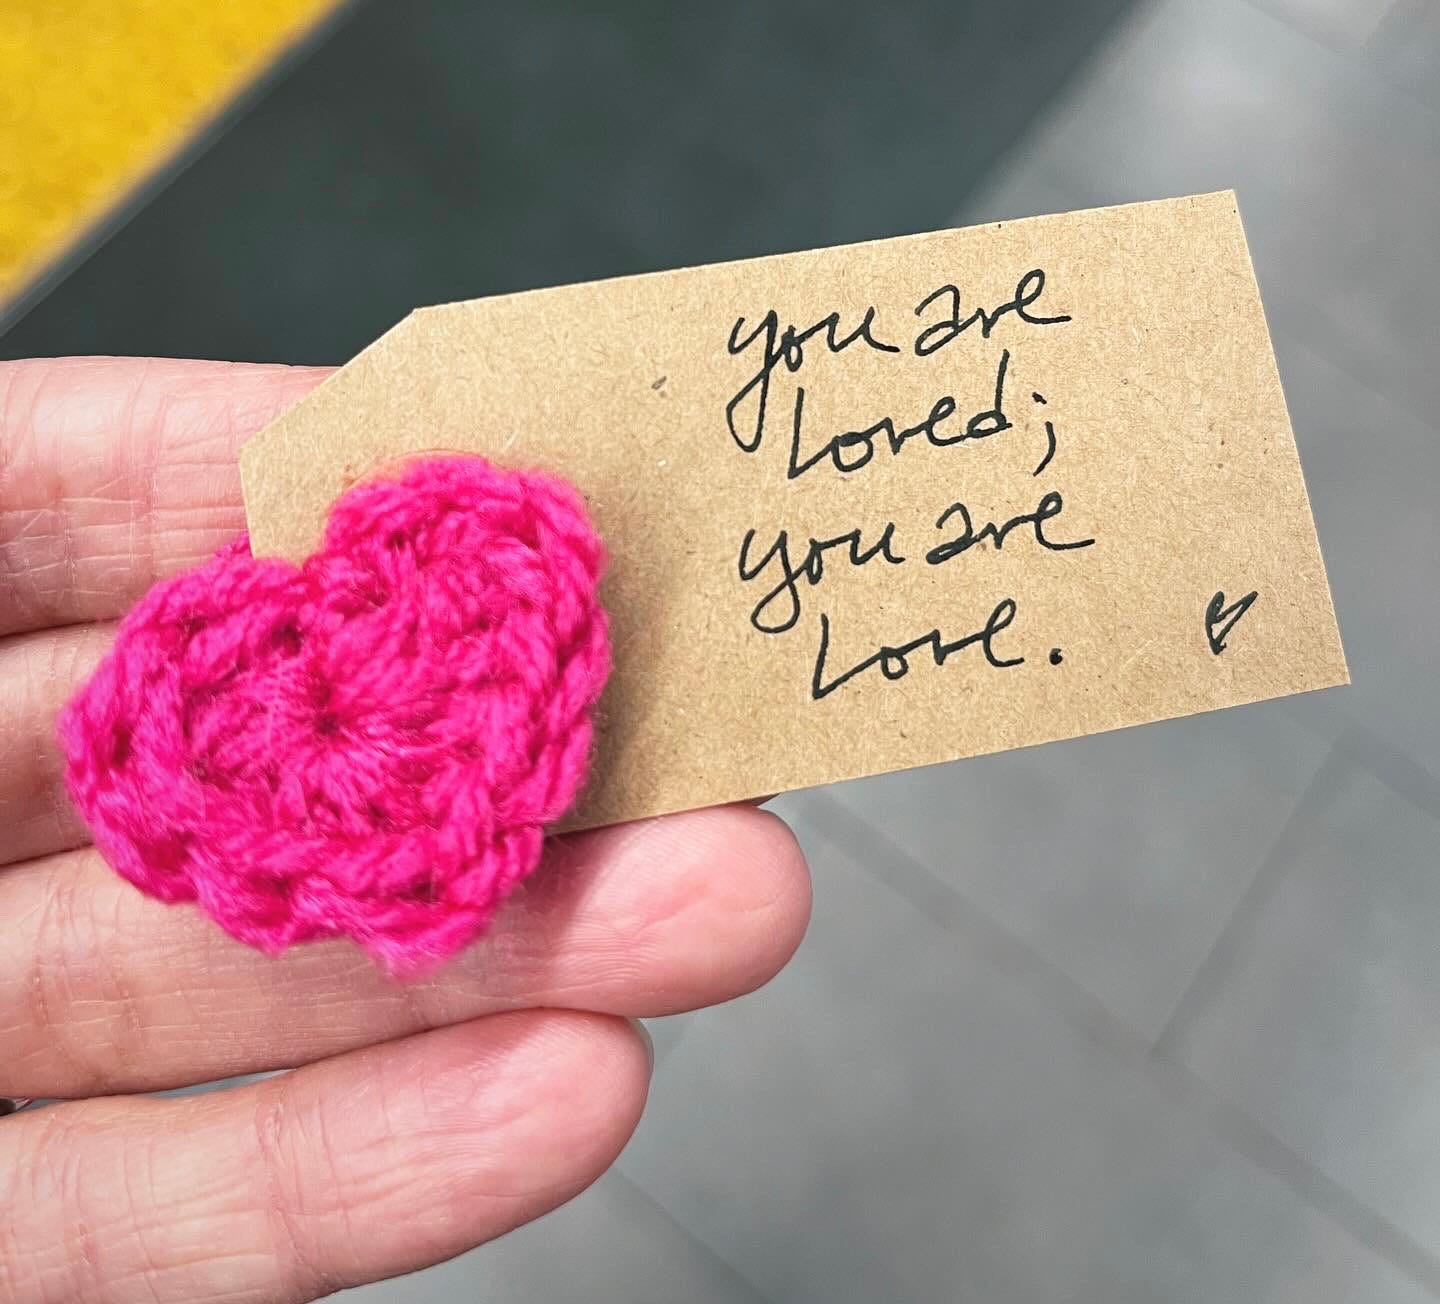 you are
loved;
you are
love.